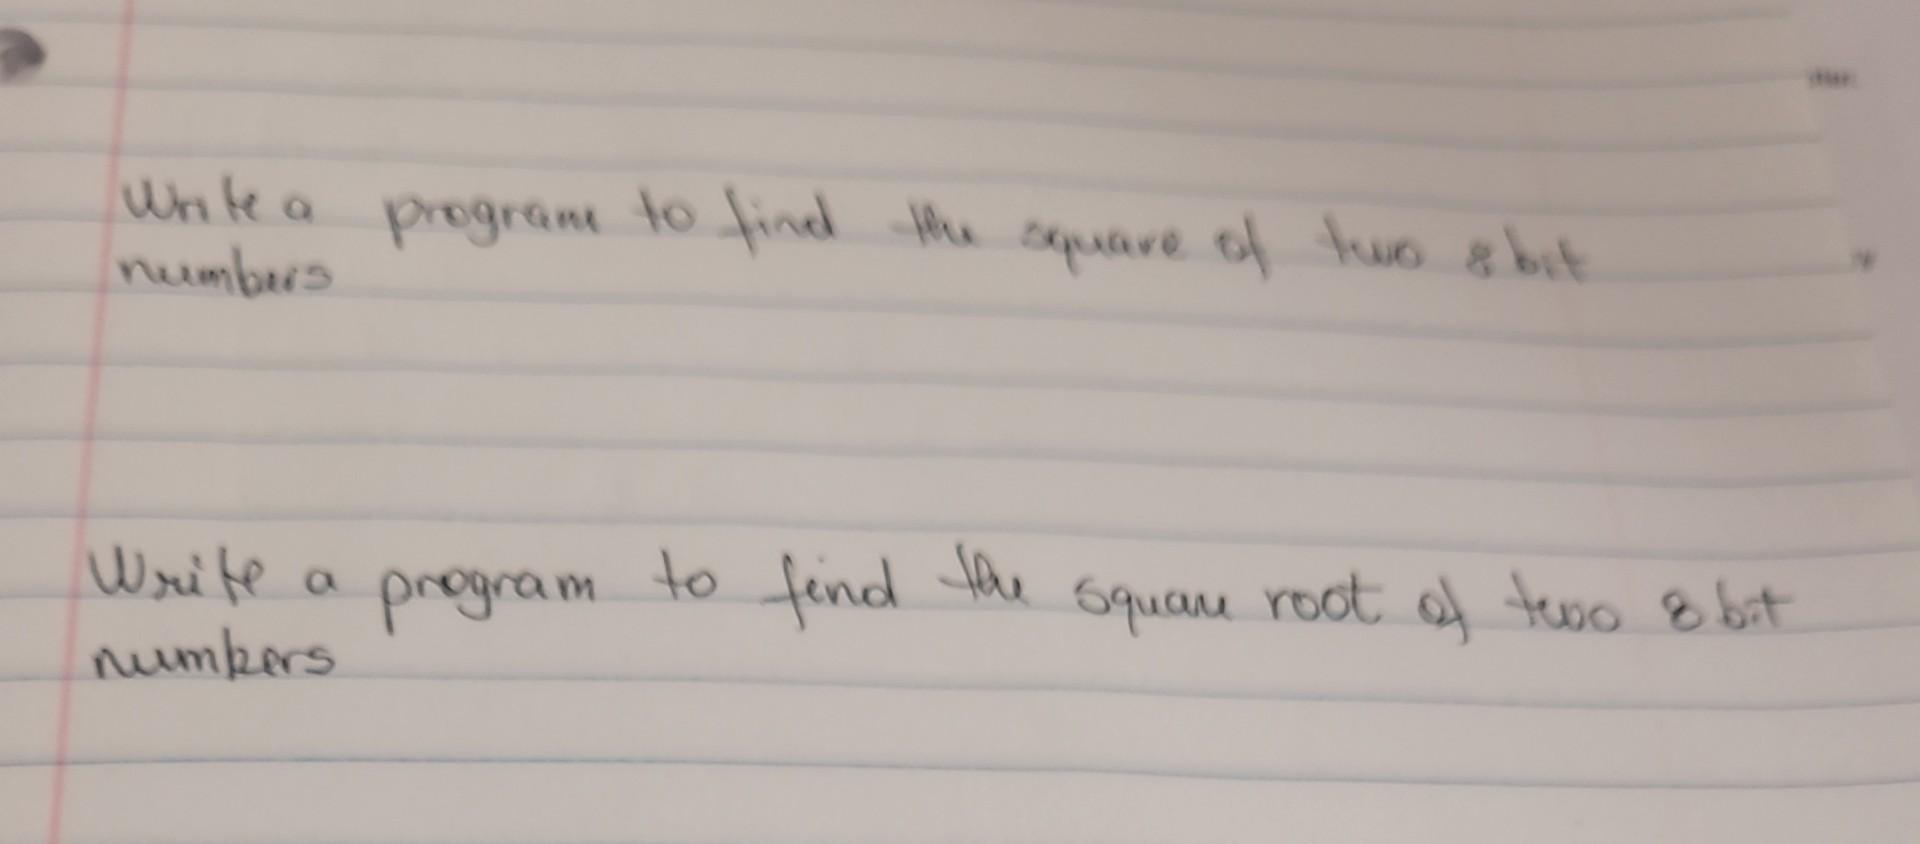 Write a program to find the square of two 8 bit
numbers
Write a program to find the square root of two 8 bit
numbers